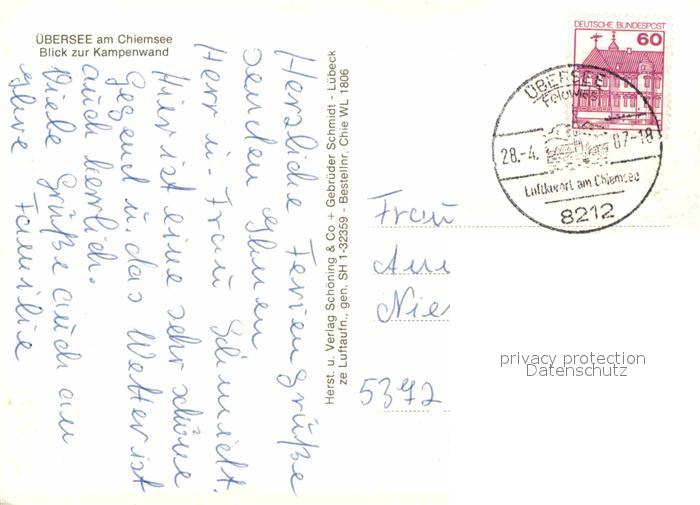 ÜBERSEE am Chiemsee
Blick zur Kampenwand
Herzliche Feriengrüße
senden Ihnen
Herr u. Frau Schmidt.
Hier ist eine sehr schöne
Gegend u. das Wetter ist
auch herrlich.
Viele Grüße auch an
Ihre Familie
Herst. u. Verlag Schöning & Co + Gebrüder Schmidt - Lübeck
ze Luftaufn., gen. SH 1-32359 - Bestellnr. Chie WL 1806
DEUTSCHE BUNDESPOST
60
ÜBERSEE
Feldwies
28.-4. 87-18
Luftkurort am Chiemsee
8212
Frau
Nie
5372
privacy protection
Datenschutz